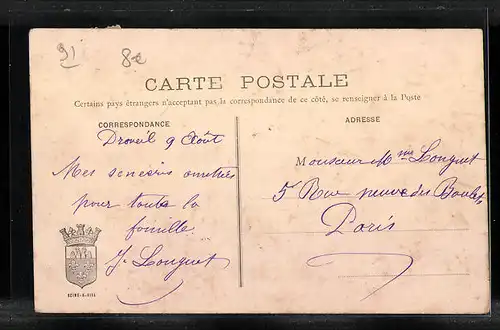 91
8e
CARTE POSTALE
Certains pays étrangers n'acceptant pas la correspondance de ce côté, se renseigner à la Poste
CORRESPONDANCE
ADRESSE
Draveil 9 Août
Mes sincères amitiés
pour toute la
famille.
J. Longuet
Monsieur Mme Longuet
5 Rue neuve des Boulets
Paris
SEINE-&-OISE